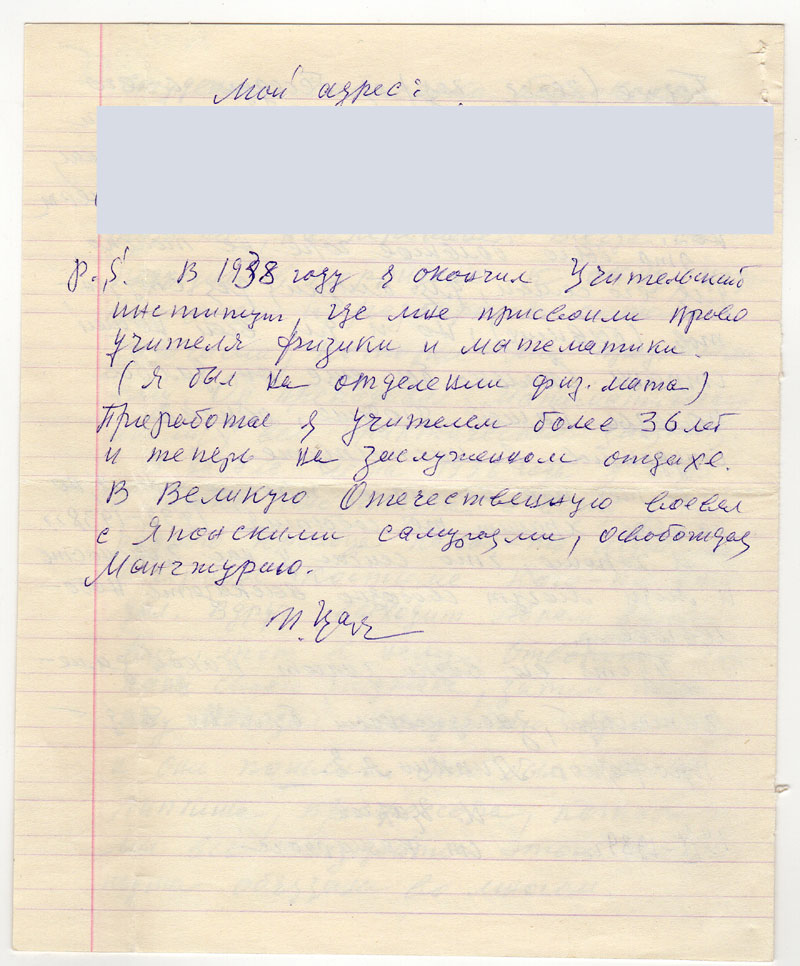 Мой адрес:
P.S. В 1938 году я окончил Учительский
институт, где мне присвоили право
учителя физики и математики.
(я был на отделении физ.мата)
Проработал я учителем более 36 лет
и теперь на заслуженном отдыхе.
В Великую Отечественную воевал
с Японскими самураями, освобождая
Манчжурию.